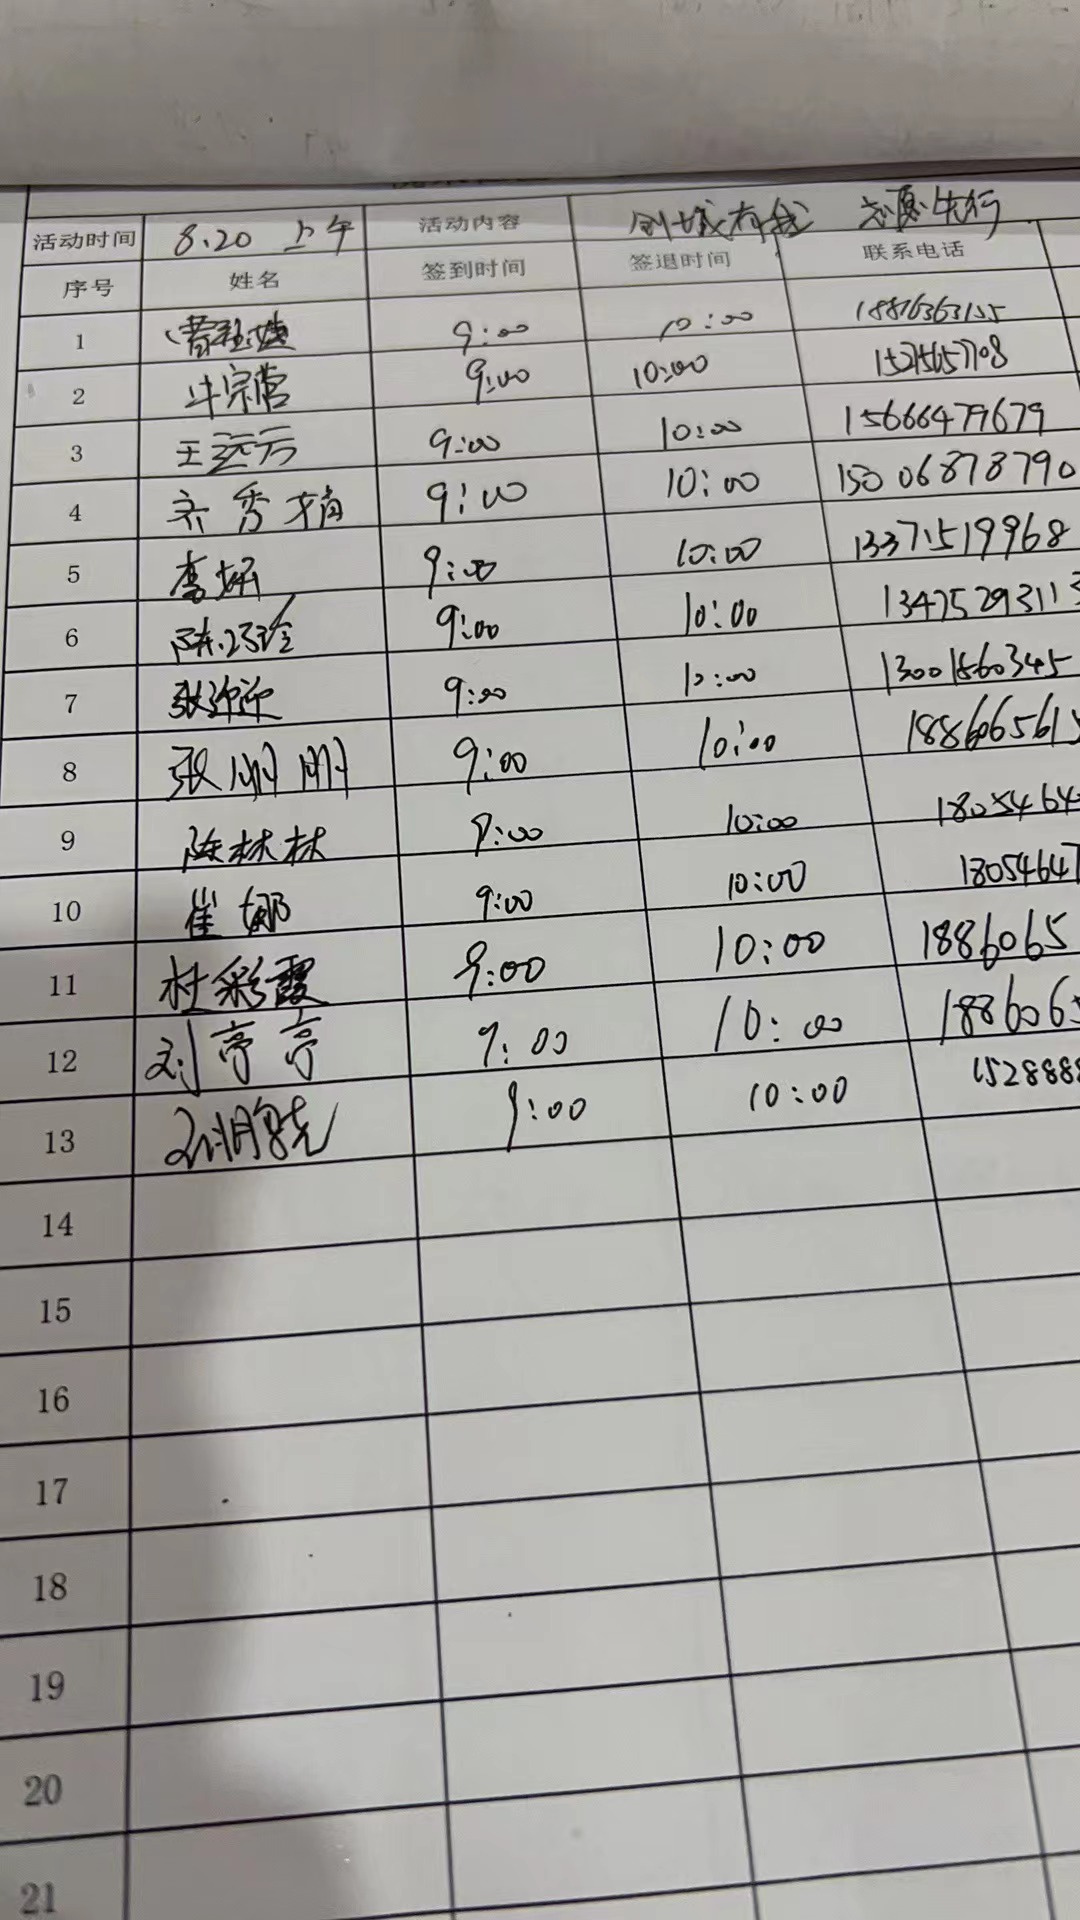 活动时间 8.20 上午 活动内容 创城有我 志愿先行
序号 姓名 签到时间 签退时间 联系电话
1 9:00 10:00
2 9:00 10:00 15215657708
3 王远方 9:00 10:00 15666479679
4 齐秀楠 9:00 10:00 15006878790
5 李妍 9:00 10:00 13371519968
6 陈巧玲 9:00 10:00 1347529311
7 张迎迎 9:00 10:00 13001560345
8 张明明 9:00 10:00 188606561
9 陈林林 9:00 10:00 1805464
10 崔娜 9:00 10:00 1805464
11 杜彩霞 9:00 10:00 1886065
12 刘亭亭 9:00 10:00 188606
13 9:00 10:00 152888
14
15
16
17
18
19
20
21